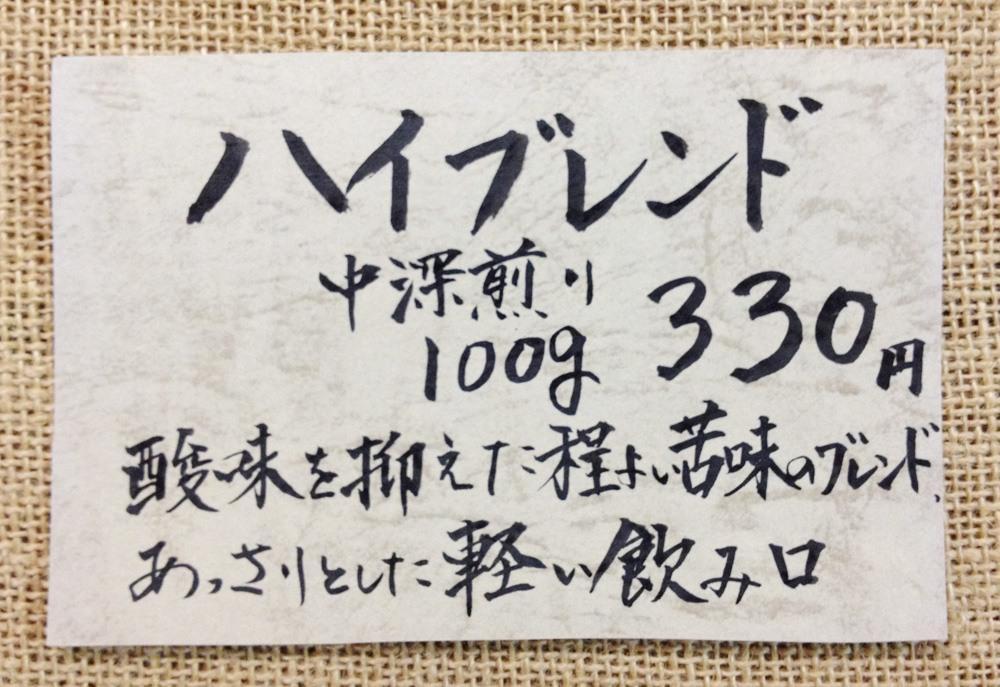 ハイブレンド
中深煎り
100g 330円
酸味を抑えた程よい苦味のブレンド、
あっさりとした軽い飲み口